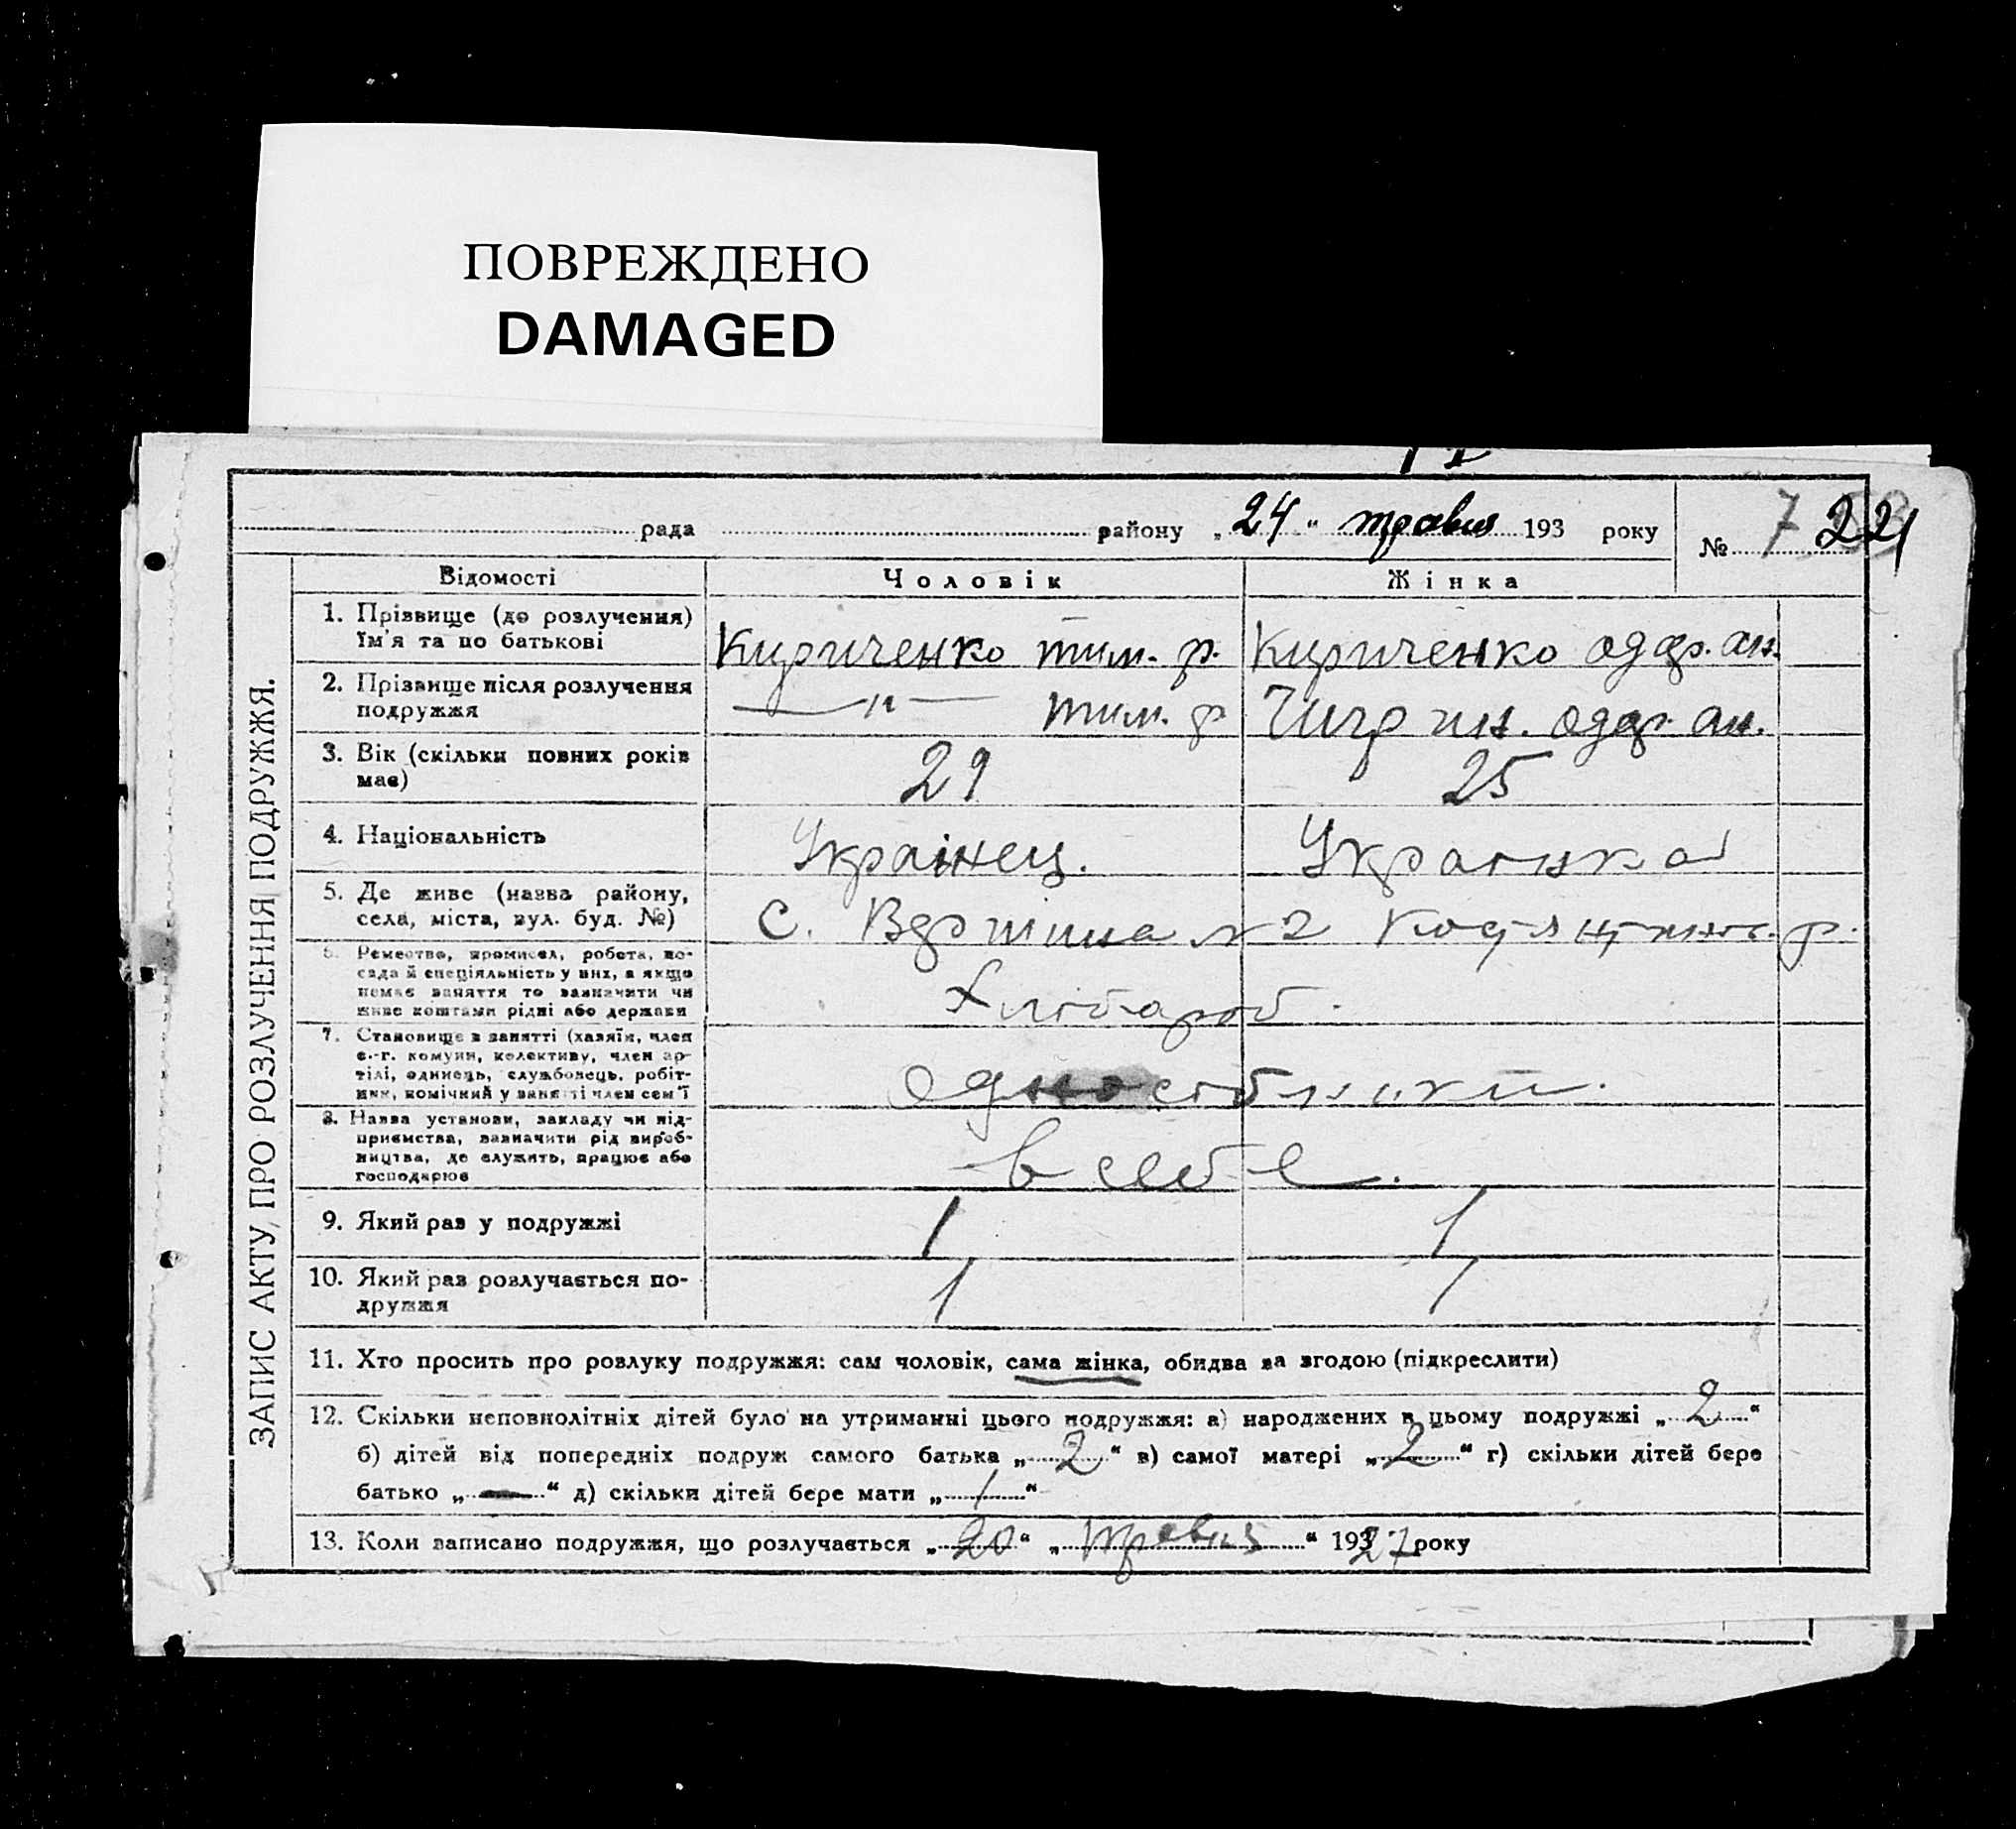 ПОВРЕЖДЕНО
DAMAGED
рада района „24“ травня 193 року № 7 221
ЗАПИС АКТУ ПРО РОЗЛУЧЕННЯ ПОДРУЖЖЯ.
Відомості Чоловік Жінка
1. Прізвище (до розлучення)
їм'я та по батькові
Кириченко тим. р. Кириченко одар. ан.
2. Прізвище після розлучення
подружжя
—"— тим. р Чигрин. одар. ан.
3. Вік (скільки повних років
має)
29 25
4. Національність
Українець. Украінка
5. Де живе (назва району,
села, міста, вул. буд. №)
С. N 2 р.
6. Ремество, промисел, робота, по-
сада й спеціяльність у них, а якщо
немає заняття то зазначити чи
живе коштами рідні або держави
Хлібароб.
7. Становище в занятті (хазяїн, член
с.-г. комуни, колективу, член ар-
тілі, одинець, службовець, робіт-
ник, помічний у занятті член сем'ї
односібники.
8. Назва установи, закладу чи під-
приємства, зазначити рід вироб-
ництва, де служить, працює або
господарює
в себе.
9. Який раз у подружжі
1 1
10. Який раз розлучається по-
дружжя
1 1
11. Хто просить про розлуку подружжя: сам чоловік, сама жінка, обидва за згодою (підкреслити)
12. Скільки неповнолітніх дітей було на утриманні цього подружжя: а) народжених в цьому подружжі „2“
б) дітей від попередніх подруж самого батька „2“ в) самої матері „2“ г) скільки дітей бере
батько „—“ д) скільки дітей бере мати „1“
13. Коли записано подружжя, що розлучається „20“ „травня“ 1927 року